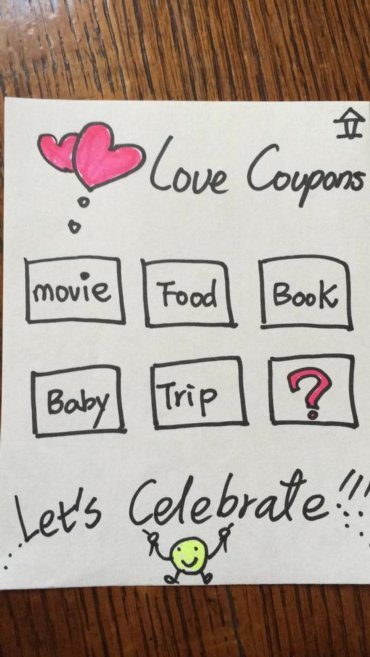 Love Coupons
movie Food Book
Baby Trip ?
Let's Celebrate!!!